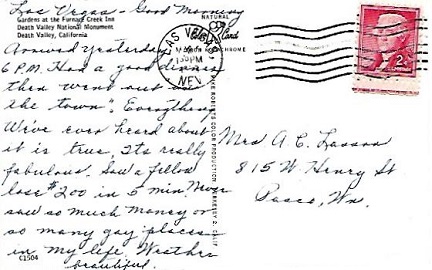 Las Vegas - Good Morning
Gardens at the Furnace Creek Inn
Death Valley National Monument
Death Valley, California
Arrived yesterday
6 P.M. Had a good dinner
then went out on
the town". Everything
We've ever heard about
it is true. Its really
fabulous. Saw a fellow
lose $200 in 5 min. Never
saw so much money or
so many gay places
in my life. Weather
beautiful.
C1504
NATURAL
COLOR
Card
LAS VEGAS
PM
NEV
2¢
Mrs A. C. Larson
815 W. Henry St
Pasco, Wn.